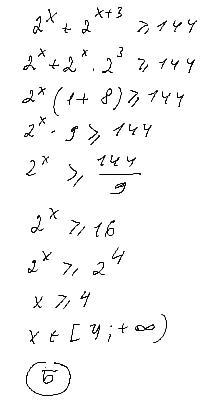 2^x + 2^{x+3} ⩾ 144
2^x + 2^x · 2^3 ⩾ 144
2^x (1 + 8) ⩾ 144
2^x · 9 ⩾ 144
2^x ⩾ 144/9
2^x ⩾ 16
2^x ⩾ 2^4
x ⩾ 4
x ∈ [4; +∞)
Б